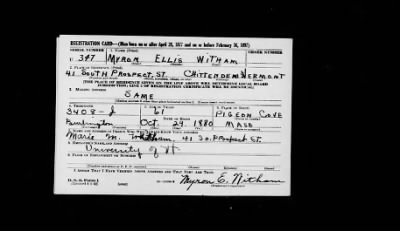 REGISTRATION CARD—(Men born on or after April 28, 1877 and on or before February 16, 1897)
SERIAL NUMBER 1. NAME (Print) ORDER NUMBER
U 347 MYRON ELLIS WITHAM
2. PLACE OF RESIDENCE (Print)
41 SOUTH PROSPECT, ST. CHITTENDEN VERMONT
[THE PLACE OF RESIDENCE GIVEN ON THE LINE ABOVE WILL DETERMINE LOCAL BOARD
JURISDICTION; LINE 2 OF REGISTRATION CERTIFICATE WILL BE IDENTICAL]
3. MAILING ADDRESS
SAME
4. TELEPHONE 5. AGE IN YEARS 6. PLACE OF BIRTH
3408-J 61 PIGEON COVE
DATE OF BIRTH
Burlington Oct. 29. 1880 MASS
7. NAME AND ADDRESS OF PERSON WHO WILL ALWAYS KNOW YOUR ADDRESS
Marie M. Witham, 41 So. Prospect St.
8. EMPLOYER'S NAME AND ADDRESS
University of Vt
9. PLACE OF EMPLOYMENT OR BUSINESS
I AFFIRM THAT I HAVE VERIFIED ABOVE ANSWERS AND THAT THEY ARE TRUE.
D. S. S. Form 1
Myron E. Witham